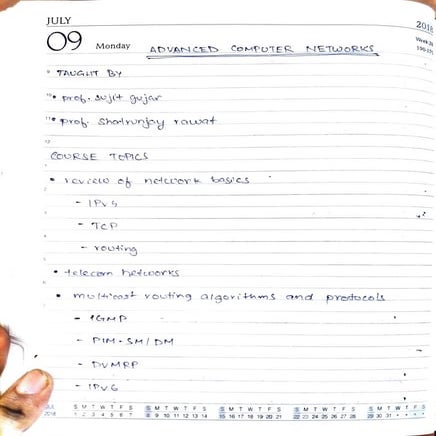 JULY
2018
09 Monday ADVANCED COMPUTER NETWORKS
Week 28
TAUGHT BY
• prof. sujit gujar
• prof. shatrunjay rawat
COURSE TOPICS
• review of network basics
- IPv5
- TCP
- routing
• telecom networks
• multicast routing algorithms and protocols
- IGMP
- PIM-SM/DM
- DVMRP
- IPv6
JUL S M T W T F S S M T W T F S S M T W T F S S M T W T F S S M T W T F S
2018 1 2 3 4 5 6 7 8 9 10 11 12 13 14 15 16 17 18 19 20 21 22 23 24 25 26 27 28 29 30 31 • • • •